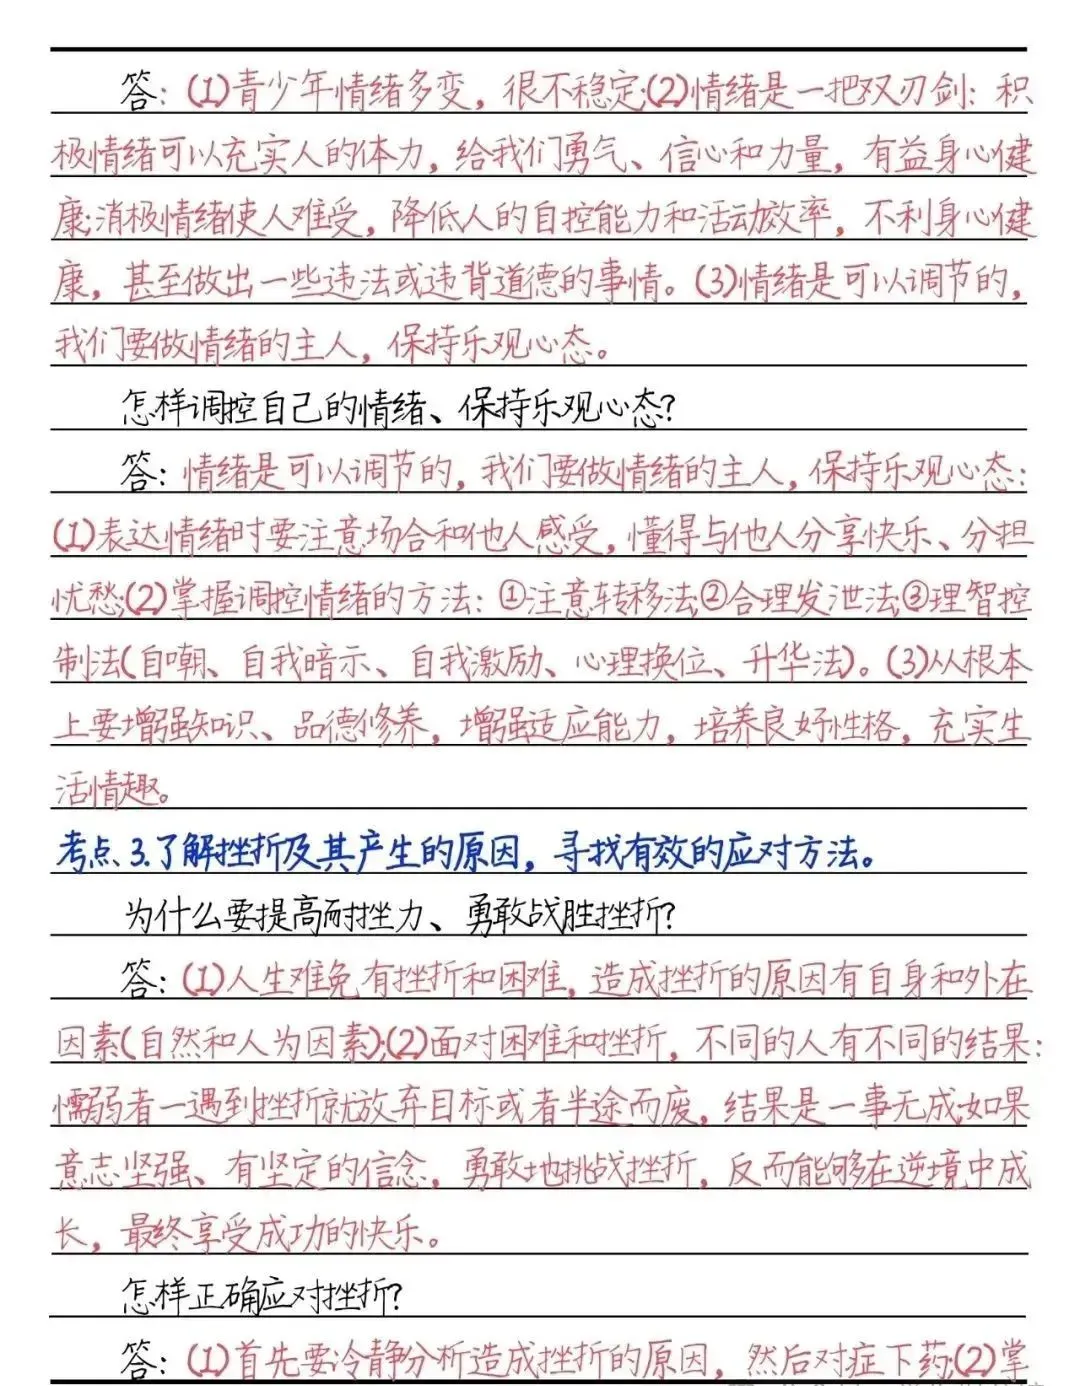 答：(1)青少年情绪多变，很不稳定;(2)情绪是一把双刃剑：积
极情绪可以充实人的体力，给我们勇气、信心和力量，有益身心健
康;消极情绪使人难受，降低人的自控能力和活动效率，不利身心健
康，甚至做出一些违法或违背道德的事情。(3)情绪是可以调节的，
我们要做情绪的主人，保持乐观心态。
怎样调控自己的情绪、保持乐观心态?
答：情绪是可以调节的，我们要做情绪的主人，保持乐观心态：
(1)表达情绪时要注意场合和他人感受，懂得与他人分享快乐、分担
忧愁;(2)掌握调控情绪的方法：①注意转移法;②合理发泄法;③理智控
制法(自嘲、自我暗示、自我激励、心理换位、升华法)。(3)从根本
上要增强知识、品德修养，增强适应能力，培养良好性格，充实生
活情趣。
考点、3.了解挫折及其产生的原因，寻找有效的应对方法。
为什么要提高耐挫力、勇敢战胜挫折?
答：(1)人生难免有挫折和困难，造成挫折的原因有自身和外在
因素(自然和人为因素);(2)面对困难和挫折，不同的人有不同的结果：
懦弱者一遇到挫折就放弃目标或者半途而废，结果是一事无成;如果
意志坚强、有坚定的信念，勇敢地挑战挫折，反而能够在逆境中成
长，最终享受成功的快乐。
怎样正确应对挫折?
答：(1)首先要冷静分析造成挫折的原因，然后对症下药;(2)掌